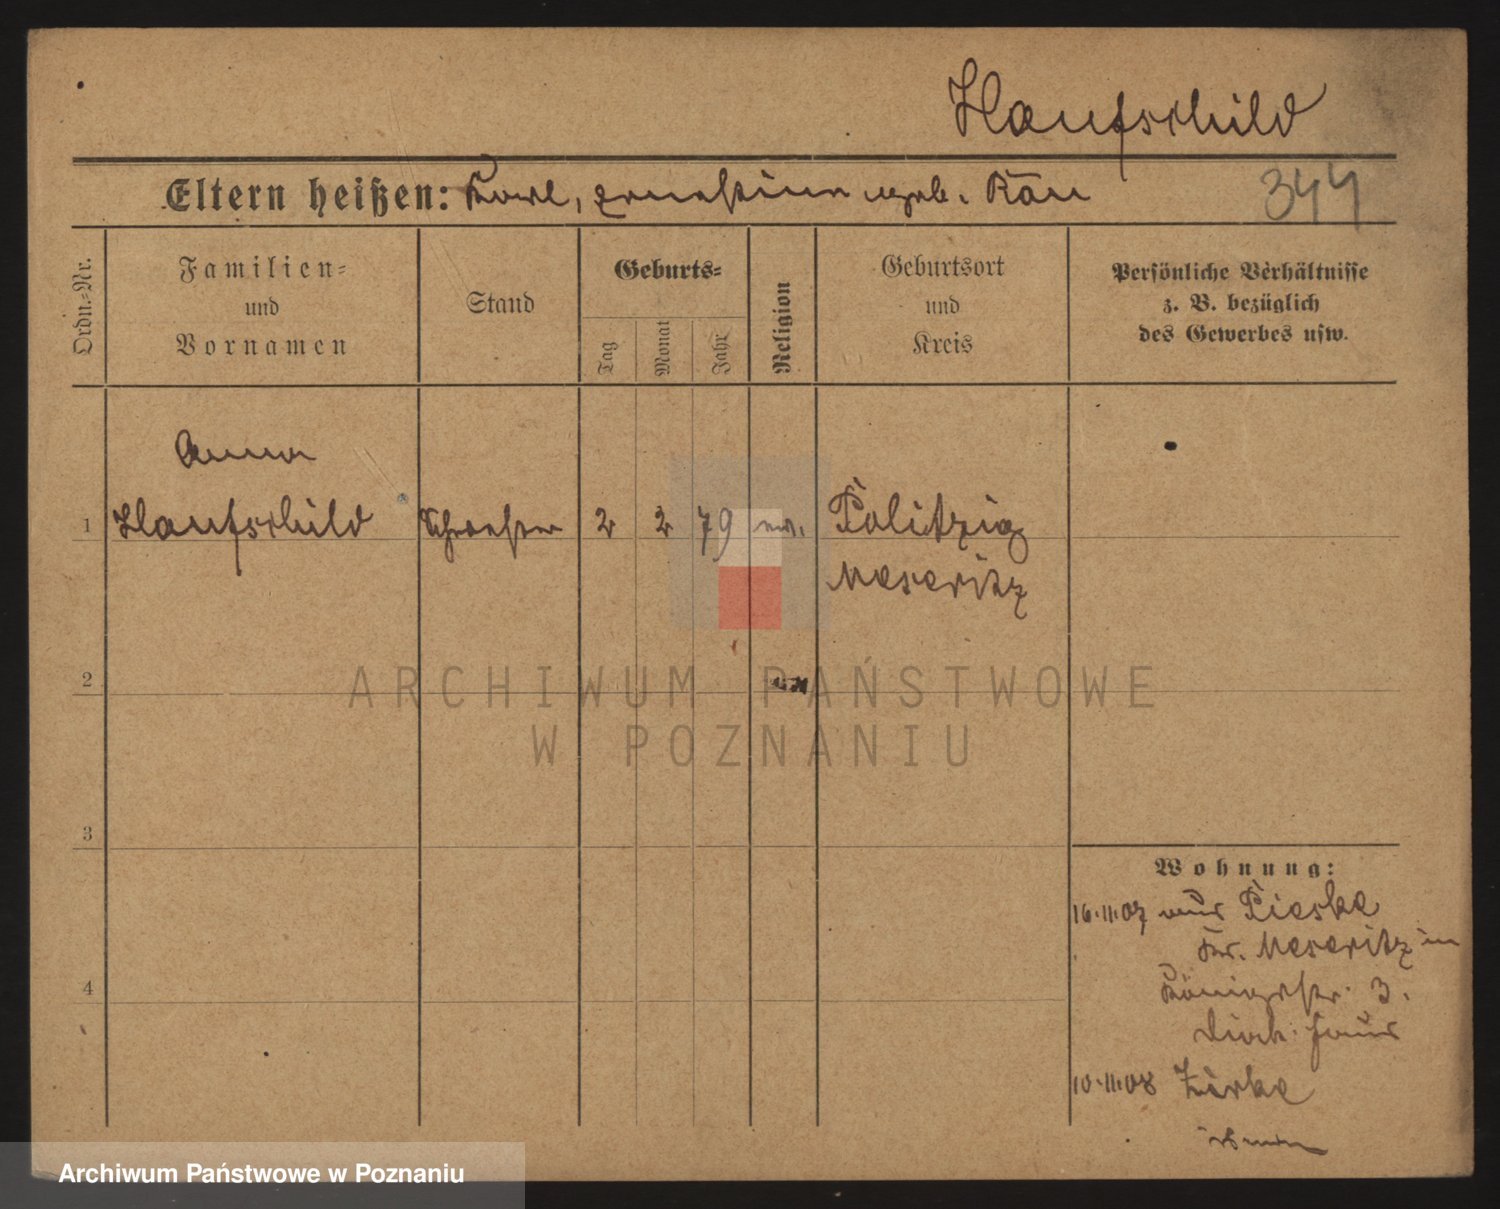 Haufschild
Eltern heißen: Karl, Ernestine geb. Rau
344
Ordn.-Nr.
Familien-
und
Vornamen
Stand
Geburts-
Tag
Monat
Jahr
Religion
Geburtsort
und
Kreis
Persönliche Verhältnisse
z. B. bezüglich
des Gewerbes usw.
Anna
1 Haufschild Schwester 2 2 79 ev. Politzig
Meseritz
2
3
4
Wohnung:
16.11.07 aus Pieske
Kr. Meseritz in
Königstr. 3.
Diak. Haus
10.11.08 Zirke
ARCHIWUM PAŃSTWOWE
W POZNANIU
Archiwum Państwowe w Poznaniu